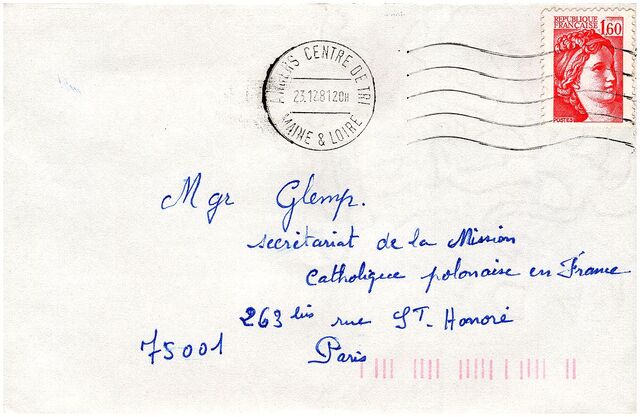 REPUBLIQUE
FRANÇAISE 1,60
POSTES
ANGERS CENTRE DE TRI
23.12.81 20H
MAINE & LOIRE
Mgr Glemp.
secrétariat de la Mission
Catholique polonaise en France
263 bis rue ST. Honoré
75001 Paris